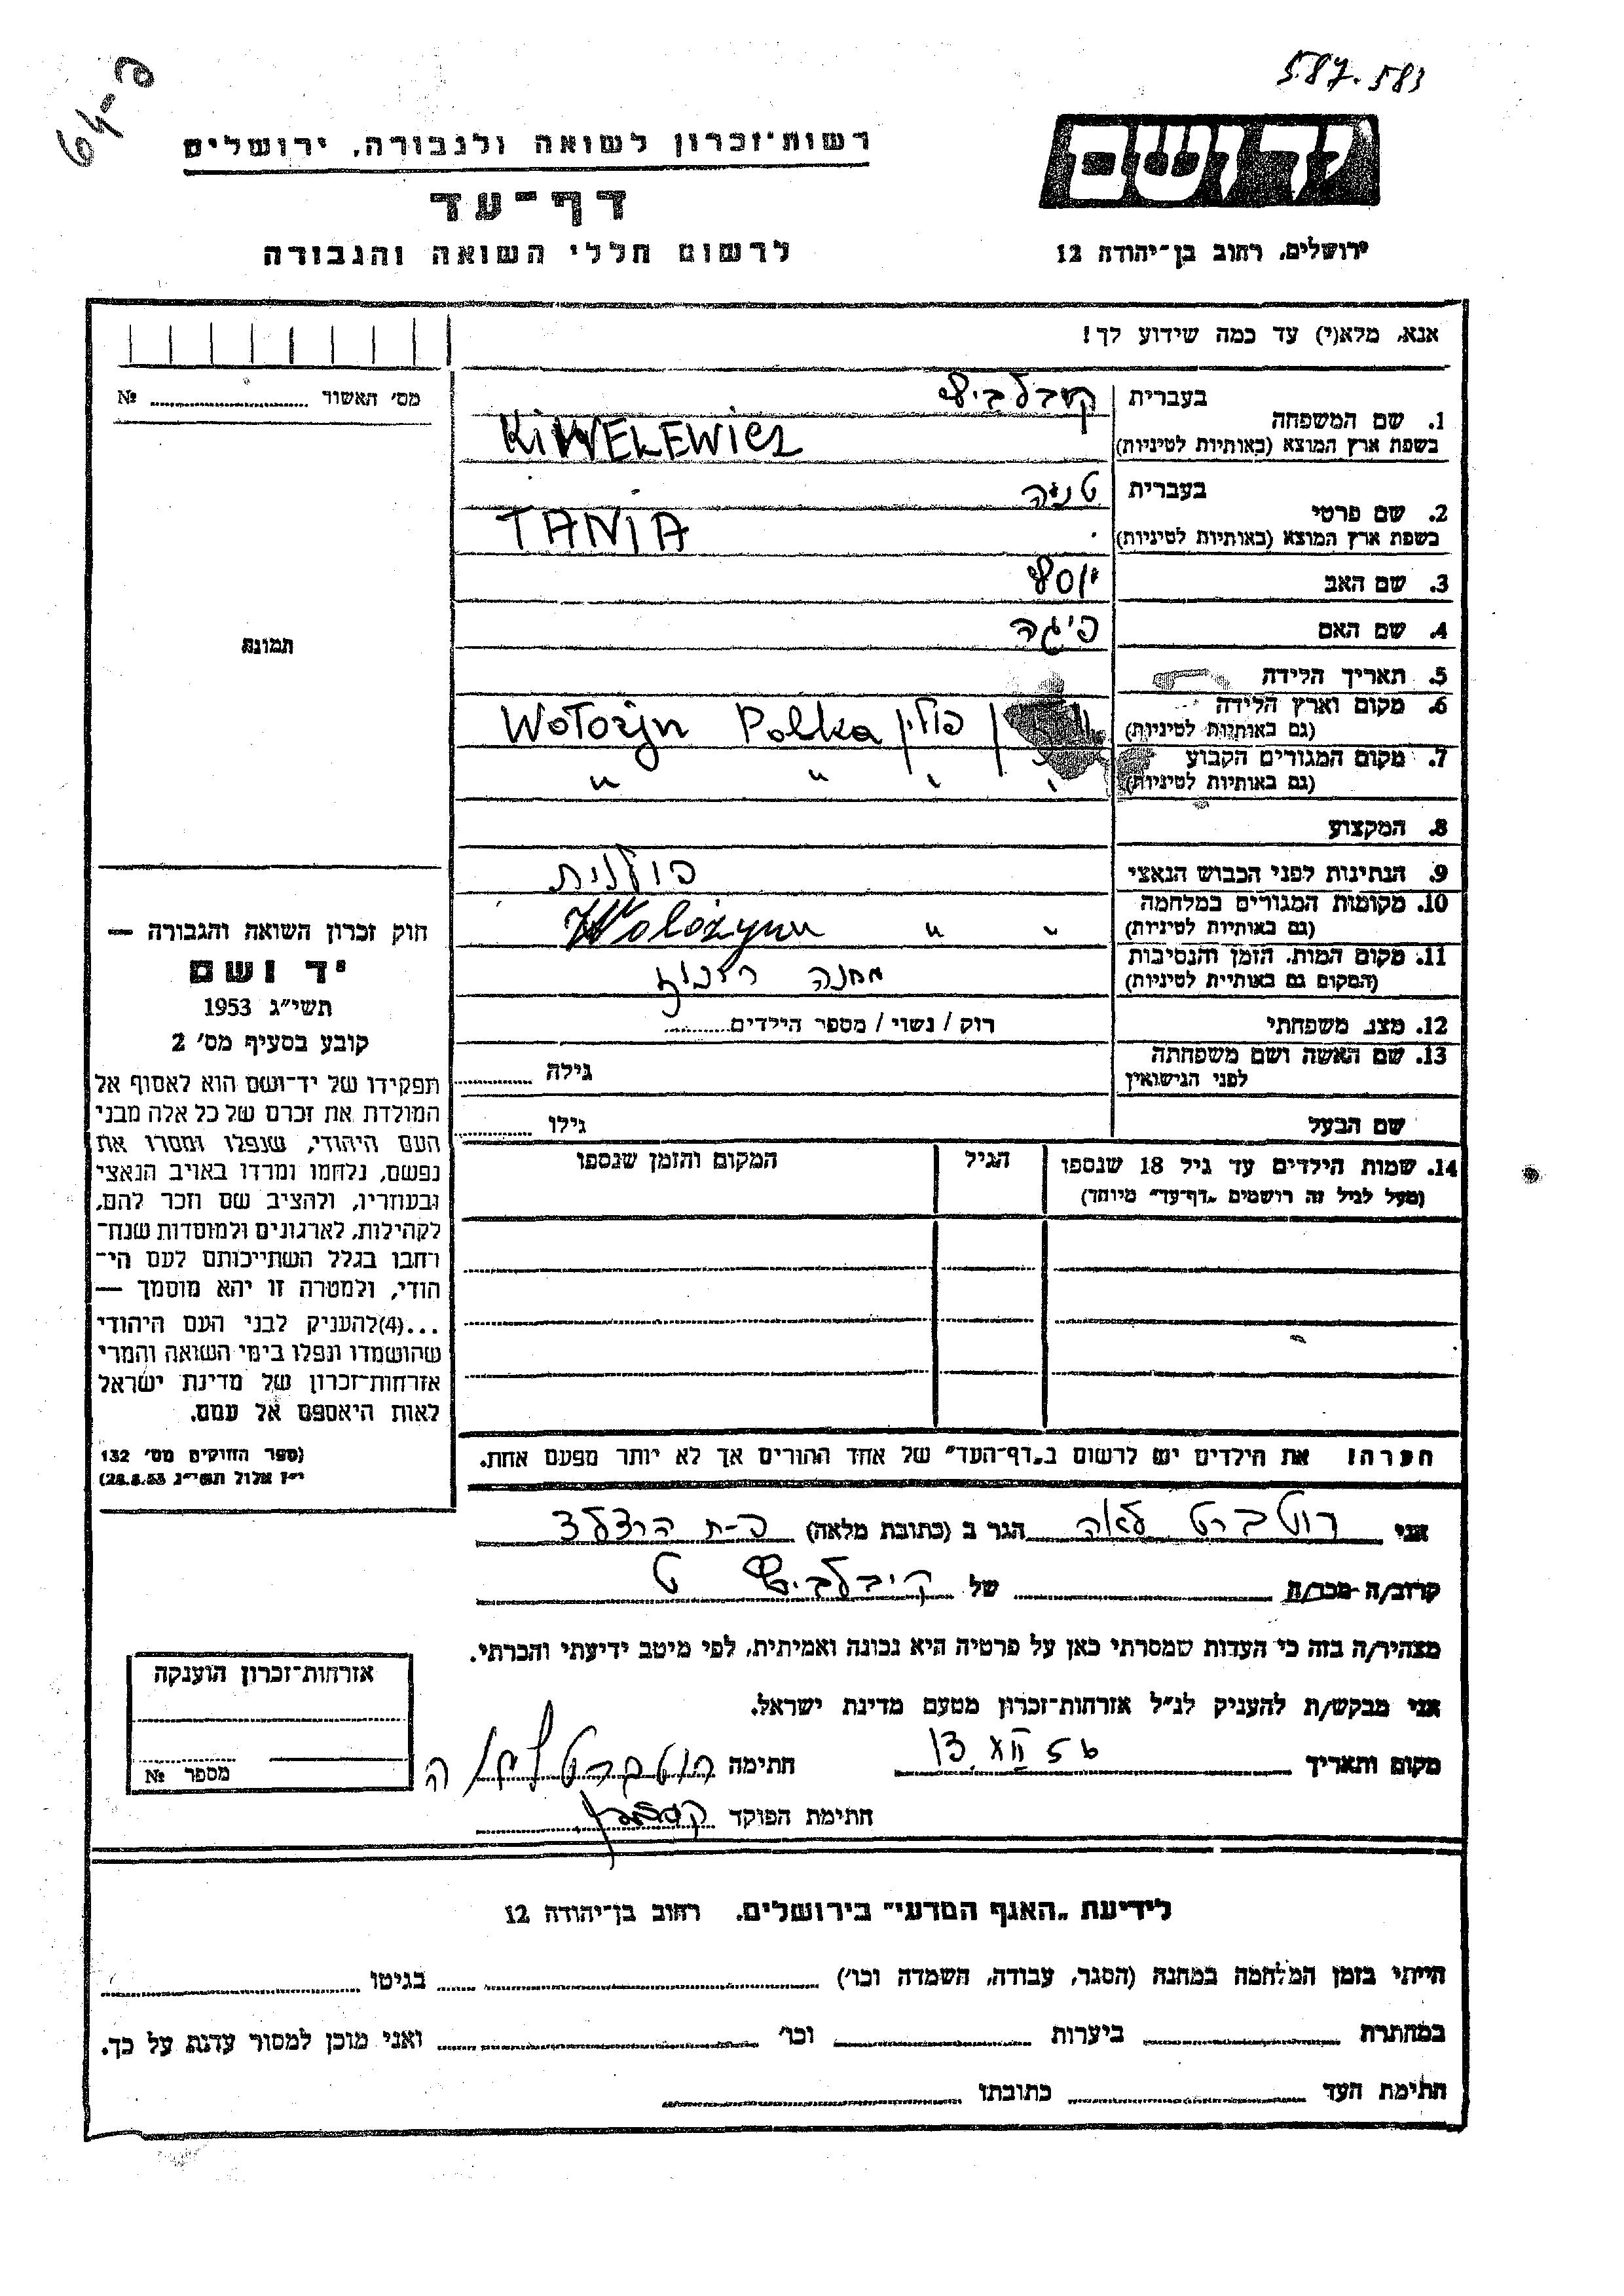 587.583
64-ם
רשות־זכרון לשואה ולגבורה, ירושלים
יד ושם
דף־עד
לרשום חללי השואה והגבורה
ירושלים, רחוב בן־יהודה 12
אנא, מלא(י) עד כמה שידוע לך!
מס׳ האשור № 
1. שם המשפחה
בעברית קיבלביץ
בשפת ארץ המוצא (באותיות לטיניות) KiWELEWiCZ
2. שם פרטי
בעברית טניה
בשפת ארץ המוצא (באותיות לטיניות) TANIA
3. שם האב יוסף
4. שם האם פיגה
תמונה
5. תאריך הלידה
6. מקום וארץ הלידה פולין Polka Wołożyn
(גם באותיות לטיניות)
7. מקום המגורים הקבוע " " " "
(גם באותיות לטיניות)
8. המקצוע
9. הנתינות לפני הכבוש הנאצי פולנית
10. מקומות המגורים במלחמה " " Wołożynu
(גם באותיות לטיניות)
11. מקום המות, הזמן והנסיבות מחנה
(המקום גם באותיות לטיניות)
12. מצב משפחתי רוק / נשוי / מספר הילדים
13. שם האשה ושם משפחתה גילה
לפני הנישואין
שם הבעל גילו
14. שמות הילדים עד גיל 18 שנספו הגיל המקום והזמן שנספו
(מעל לגיל זה רושמים „דף־עד" מיוחד)
חוק זכרון השואה והגבורה —
יד ושם
תשי"ג 1953
קובע בסעיף מס׳ 2
תפקידו של יד־ושם הוא לאסוף אל
המולדת את זכרם של כל אלה מבני
העם היהודי, שנפלו ומסרו את
נפשם, נלחמו ומרדו באויב הנאצי
ובעוזריו, ולהציב שם וזכר להם,
לקהילות, לארגונים ולמוסדות שנח־
רחבו בגלל השתייכותם לעם הי־
הודי, ולמטרה זו יהא מוסמך —
...(4)להעניק לבני העם היהודי
שהושמדו ונפלו בימי השואה והמרי
אזרחות־זכרון של מדינת ישראל
לאות היאספם אל עמם.
(ספר החוקים מס׳ 132
י״ז אלול תשי״ג 28.8.53)
הערה! את הילדים יש לרשום ב„דף־העד" של אחד ההורים אך לא יותר מפעם אחת.
אני רוטברט לאה הגר ב (כתובת מלאה)
קרוב/ה מכר/ה של קיבלביץ ט
מצהיר/ה בזה כי העדות שמסרתי כאן על פרטיה היא נכונה ואמיתית, לפי מיטב ידיעתי והכרתי.
אני מבקש/ת להעניק לנ"ל אזרחות־זכרון מטעם מדינת ישראל.
מקום ותאריך 13 XII 56 חתימה רוטברט לאה
חתימת הפוקד
אזרחות־זכרון הוענקה
מספר №
לידיעת „האגף המדעי" בירושלים, רחוב בן־יהודה 12
הייתי בזמן המלחמה במחנה (הסגר, עבודה, השמדה וכו׳) בגיטו
במחתרת ביערות וכו׳ ואני מוכן למסור עדות על כך.
חתימת העד כתובתו